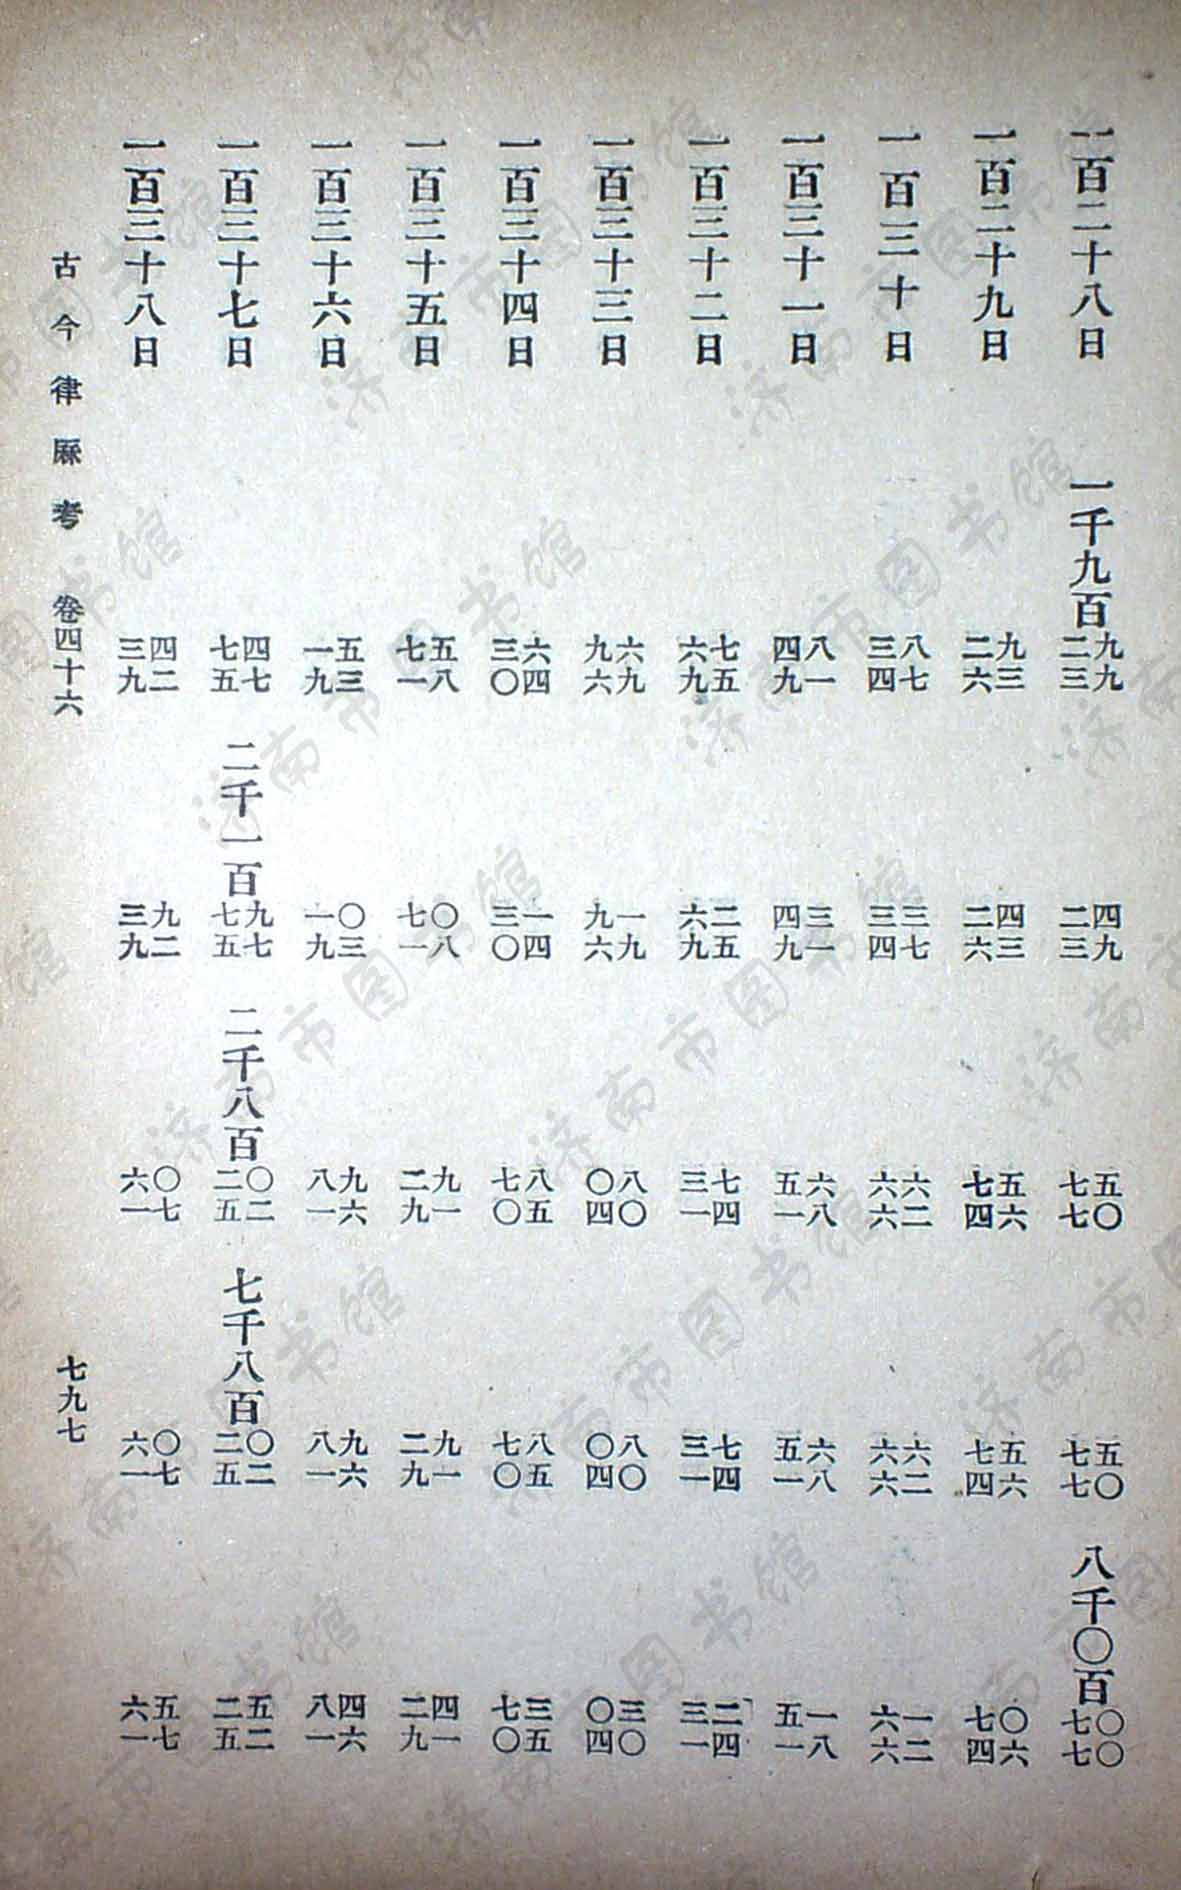 一百二十八日 一千九百九九二三 四九二三 五〇七七 五〇七七 八千〇百〇〇七七
一百二十九日 九三二六 四三二六 五六七四 五六七四 〇六七四
一百三十日 八七三四 三七三四 六二六六 六二六六 一二六六
一百三十一日 八一四九 三一四九 六八五一 六八五一 一八五一
一百三十二日 七五六九 二五六九 七四三一 七四三一 二四三一
一百三十三日 六九九六 一九九六 八〇〇四 八〇〇四 三〇〇四
一百三十四日 六四三〇 一四三〇 八五七〇 八五七〇 三五七〇
一百三十五日 五八七一 〇八七一 九一二九 九一二九 四一二九
一百三十六日 五三一九 〇三一九 九六八一 九六八一 四六八一
一百三十七日 四七七五 二千一百九七七五 二千八百〇二二五 七千八百〇二二五 五二二五
一百三十八日 四二三九 九二三九 〇七六一 〇七六一 五七六一
古今律厤考 卷四十六 七九七
济南市图书馆